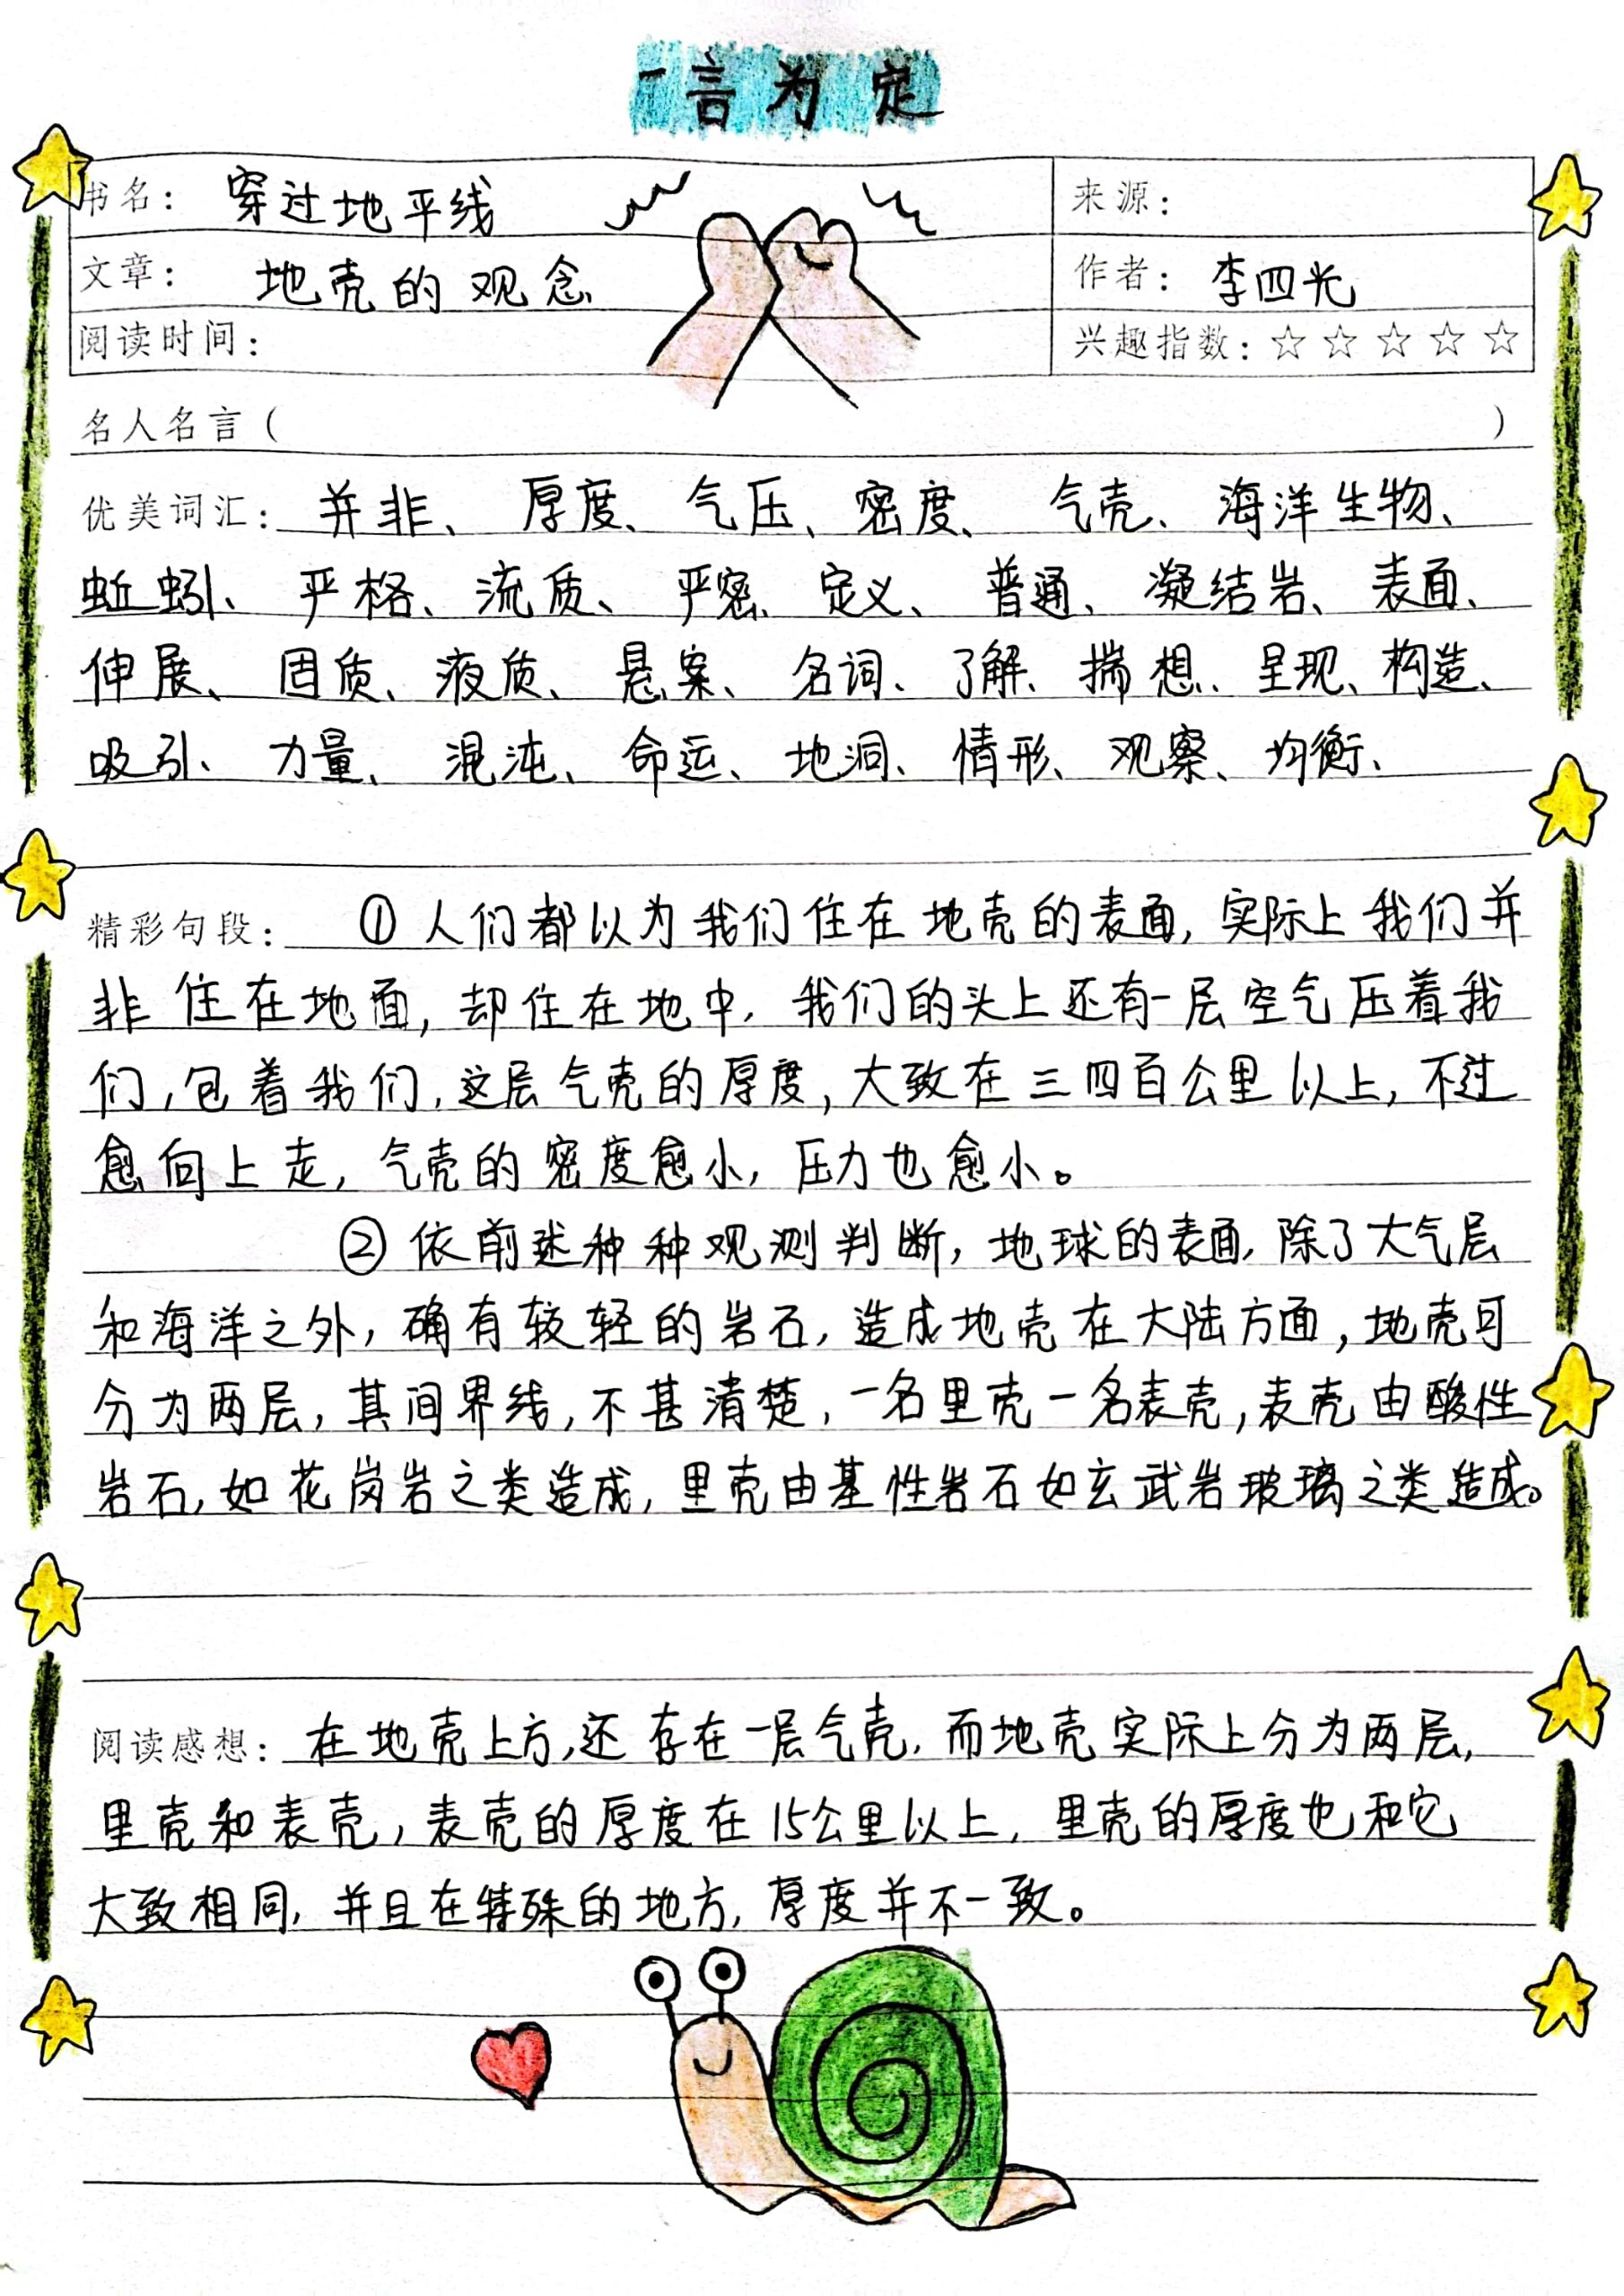 一言为定
书名： 穿过地平线
来源：
文章： 地壳的观念
作者： 李四光
阅读时间：
兴趣指数：☆☆☆☆☆
名人名言（ ）
优美词汇： 并非、厚度、气压、密度、气壳、海洋生物、
蚯蚓、严格、流质、严密、定义、普通、凝结岩、表面、
伸展、固质、液质、悬案、名词、了解、揣想、呈现、构造、
吸引、力量、混沌、命运、地洞、情形、观察、均衡、
精彩句段： ①人们都以为我们住在地壳的表面,实际上我们并
非住在地面,却住在地中,我们的头上还有一层空气压着我
们,包着我们,这层气壳的厚度,大致在三四百公里以上,不过
愈向上走,气壳的密度愈小,压力也愈小。
②依前述种种观测判断,地球的表面,除了大气层
和海洋之外,确有较轻的岩石,造成地壳在大陆方面,地壳可
分为两层,其间界线,不甚清楚,一名里壳一名表壳,表壳由酸性
岩石,如花岗岩之类造成,里壳由基性岩石如玄武岩玻璃之类造成。
阅读感想： 在地壳上方,还存在一层气壳,而地壳实际上分为两层,
里壳和表壳,表壳的厚度在15公里以上,里壳的厚度也和它
大致相同,并且在特殊的地方,厚度并不一致。